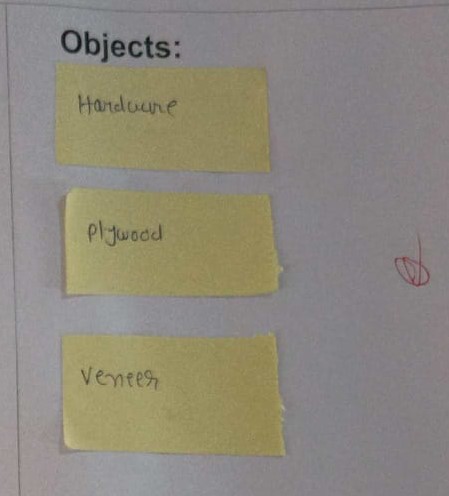 Objects:
Hardware
Plywood
Veneer